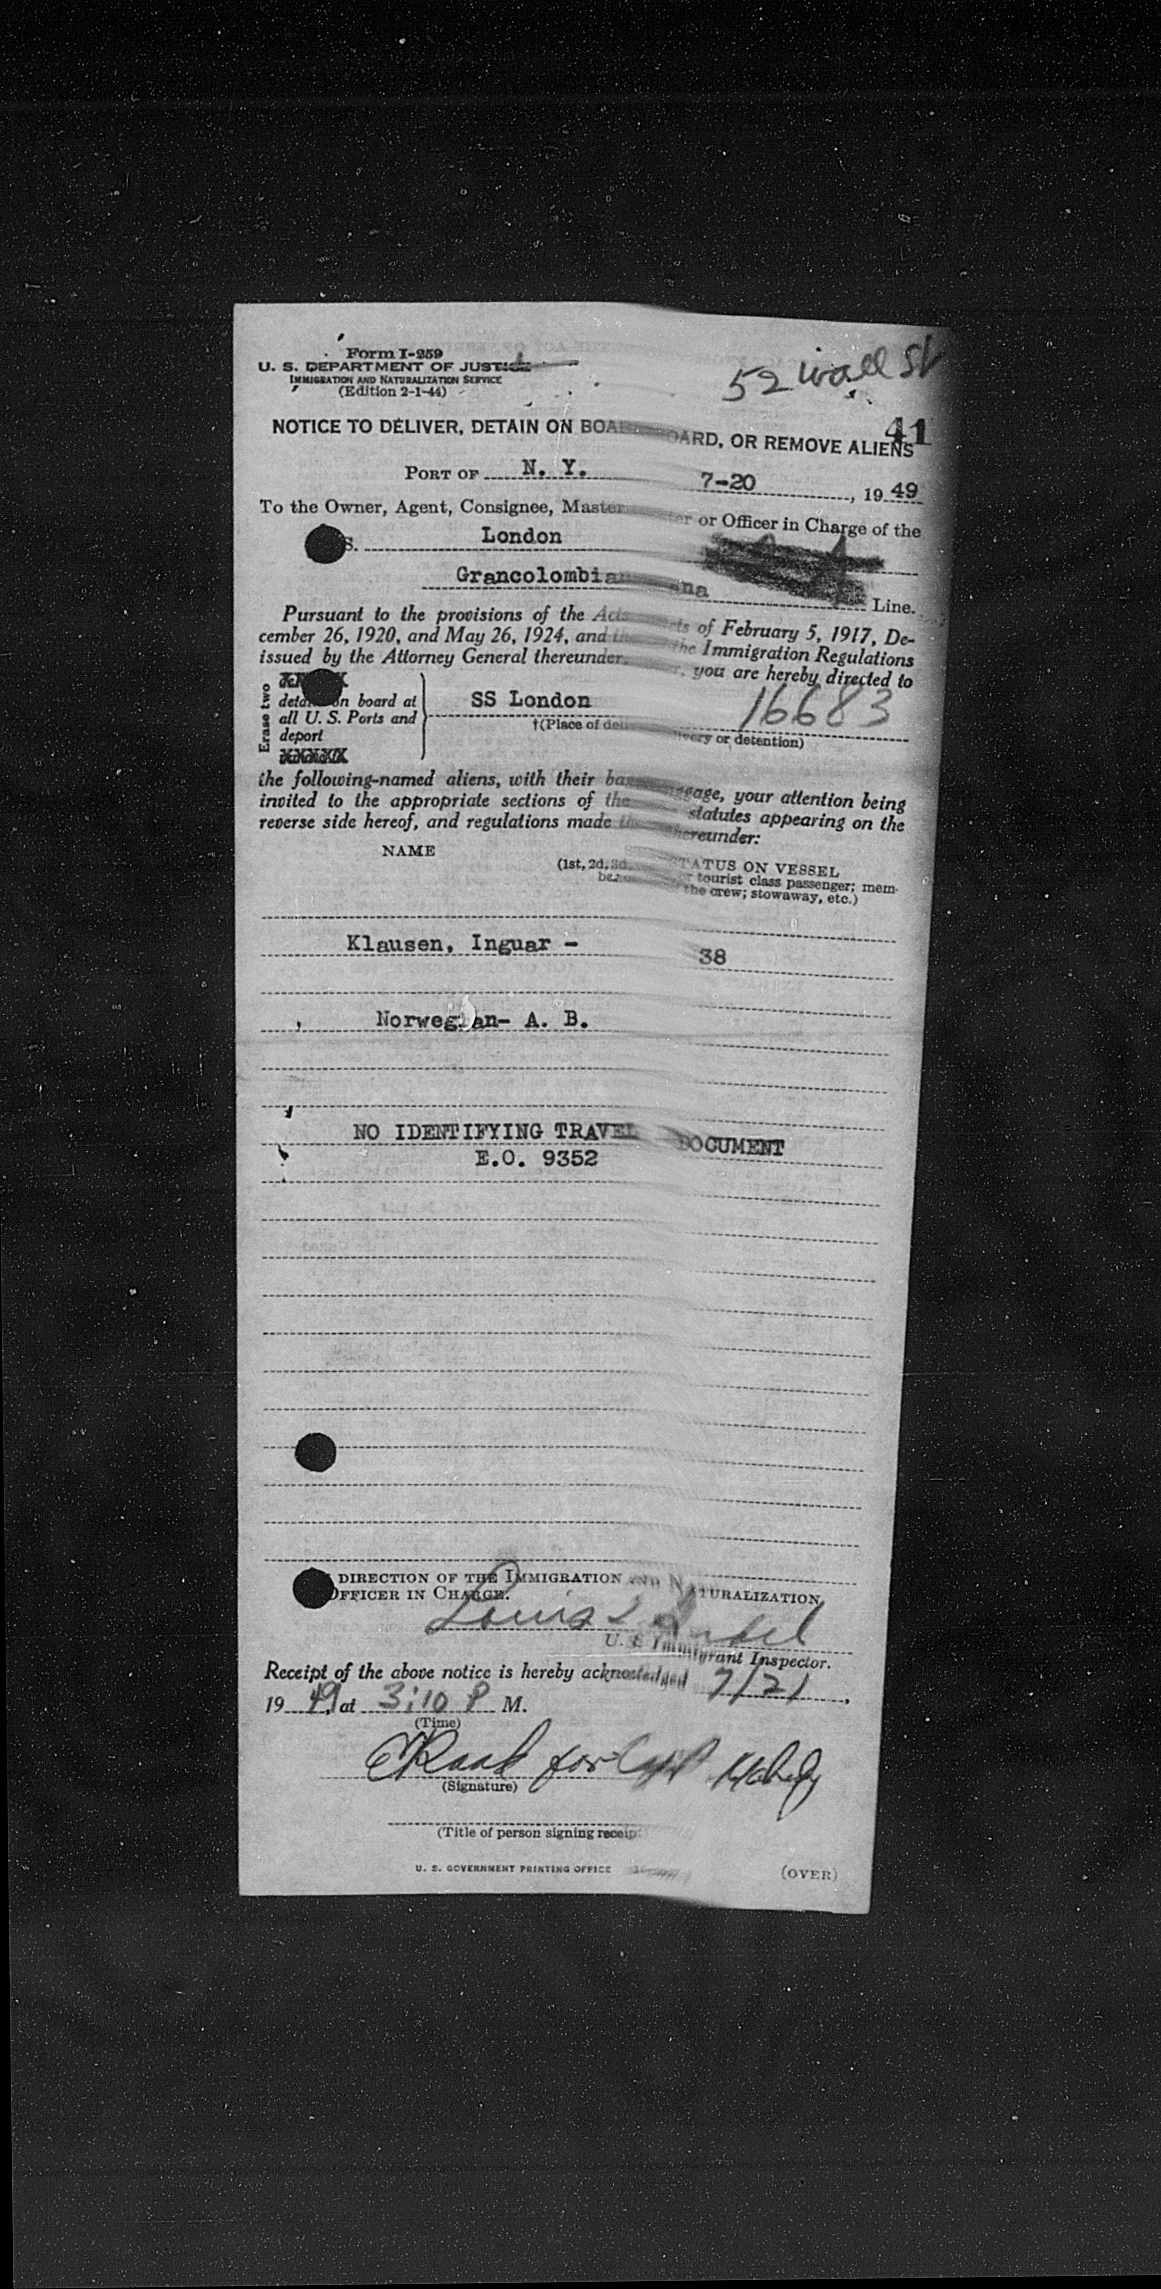 Form I-259
U. S. DEPARTMENT OF JUSTICE
IMMIGRATION AND NATURALIZATION SERVICE
(Edition 2-1-44)
52 Wall St
41
NOTICE TO DELIVER, DETAIN ON BOARD, OR REMOVE ALIENS
PORT OF N. Y. 7-20, 1949
To the Owner, Agent, Consignee, Master or Officer in Charge of the
S. London
Grancolombiana Line.
Pursuant to the provisions of the Acts of February 5, 1917, De-
cember 26, 1920, and May 26, 1924, and the Immigration Regulations
issued by the Attorney General thereunder, you are hereby directed to
Erase two
detain on board at
all U. S. Ports and
deport
SS London 16683
†(Place of delivery or detention)
the following-named aliens, with their baggage, your attention being
invited to the appropriate sections of the statutes appearing on the
reverse side hereof, and regulations made thereunder:
NAME
STATUS ON VESSEL
(1st, 2d, 3d, or tourist class passenger; mem-
ber of the crew; stowaway, etc.)
Klausen, Inguar - 38
Norwegian- A. B.
NO IDENTIFYING TRAVEL DOCUMENT
E.O. 9352
DIRECTION OF THE IMMIGRATION AND NATURALIZATION
OFFICER IN CHARGE.
Louis
U. S. Immigrant Inspector.
Receipt of the above notice is hereby acknowledged 7/21,
1949, at 3:10 P M.
(Time)
for Capt
(Signature)
(Title of person signing receipt)
U. S. GOVERNMENT PRINTING OFFICE
(OVER)